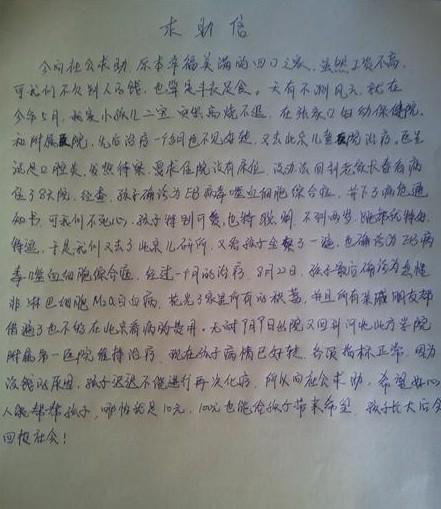 求助信
今向社会求助,原本幸福美满的四口之家,虽然工资不高,
可我们不欠别人的钱,也算是丰衣足食。天有不测风云,就在
今年七月,我家小孩儿二宝突然高烧不退,在张家口妇幼保健院,
和附属医院,先后治疗一个多月也不见好转,又去北京儿童医院治疗,医生
说是口腔炎,发热待察,要求住院没有床位,没办法回到老家长春看病
住了8天院,经查,孩子确诊为EB病毒噬血细胞综合症,并下了病危通
知书,可我们不死心,孩子特别可爱,也特聪明,不到两岁,
于是我们又去了北京儿研所,又给孩子全察了一遍,也确诊为EB病
毒噬血细胞综合症,经过一个月的治疗,8月22日,孩子最后确诊为急性
非淋巴细胞M2a白血病,花光了家里所有的积蓄,并且所有亲戚朋友都
借遍了也不够在北京看病的费用。无耐9月9日出院又回到河北北方学院
附属第一医院维持治疗,现在孩子病情已好转,各项指标正常,因为
没钱的原因,孩子迟迟不能进行再次化疗,所以向社会求助,希望好心
人能帮帮孩子,哪怕就是10元,100元也能给孩子带来希望,孩子长大后会
回报社会!